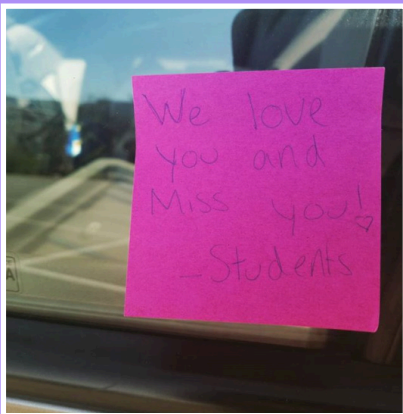 We love
you and
Miss you!♡
-Students